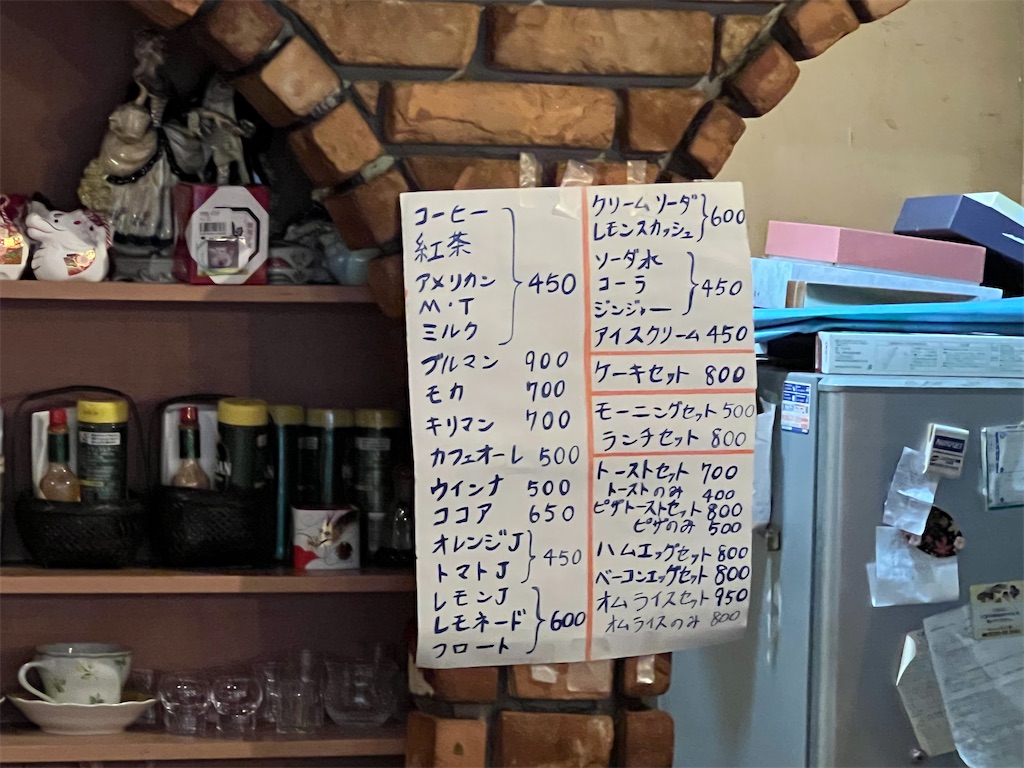 コーヒー
紅茶
アメリカン
M・T
ミルク
450
ブルマン 900
モカ 700
キリマン 700
カフェオーレ 500
ウインナ 500
ココア 650
オレンジJ
トマトJ
450
レモンJ
レモネード
フロート
600
クリームソーダ
レモンスカッシュ
600
ソーダ水
コーラ
ジンジャー
450
アイスクリーム 450
ケーキセット 800
モーニングセット 500
ランチセット 800
トーストセット 700
トーストのみ 400
ピザトーストセット 800
ピザのみ 500
ハムエッグセット 800
ベーコンエッグセット 800
オムライスセット 950
オムライスのみ 800